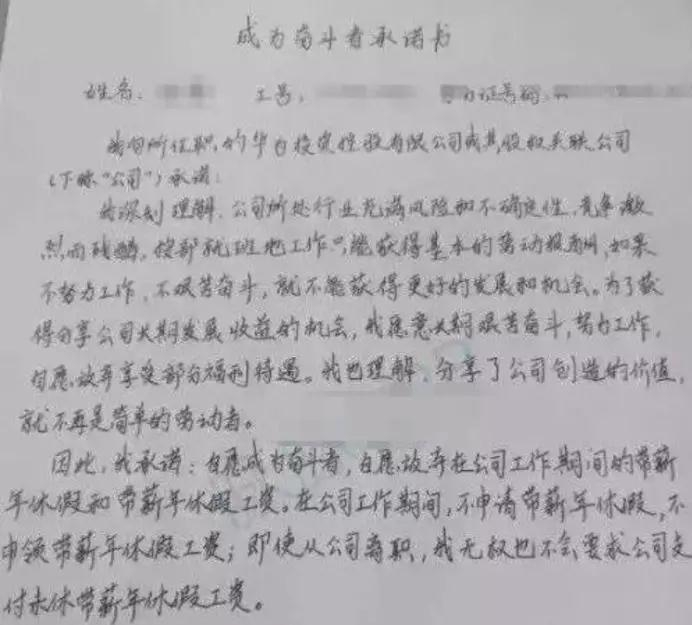 成为奋斗者承诺书
姓名: 工号: 证号码:
我向所任职的华为投资控股有限公司或其股权关联公司
(下称“公司”)承诺:
我深刻理解,公司所处行业充满风险和不确定性,竞争激
烈而残酷,按部就班地工作只能获得基本的劳动报酬,如果
不努力工作,不艰苦奋斗,就不能获得更好的发展和机会。为了获
得分享公司长期发展收益的机会,我愿意长期艰苦奋斗,努力工作,
自愿放弃享受部分福利待遇。我也理解,分享了公司创造的价值,
就不再是简单的劳动者。
因此,我承诺:自愿成为奋斗者,自愿放弃在公司工作期间的带薪
年休假和带薪年休假工资。在公司工作期间,不申请带薪年休假,不
申领带薪年休假工资;即使从公司离职,我无权也不会要求公司支
付未休带薪年休假工资。